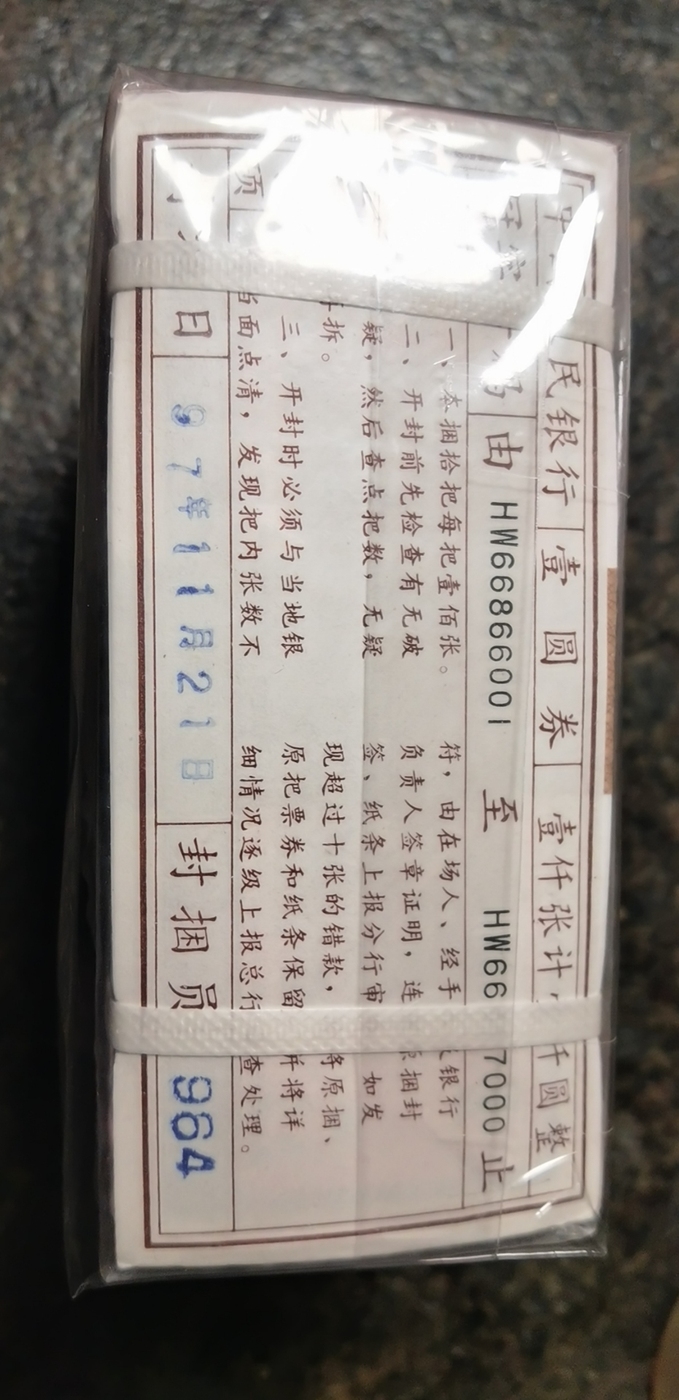 中 民银行 壹圆券 壹仟张计 仟圆整
字空 码 由 HW66866001 至 HW66 7000 止
项
一、本捆拾把每把壹佰张。
二、开封前先检查有无破
疑，然后查点把数，无疑
拆。
三、开封时必须与当地银
当面点清，发现把内张数不
符，由在场人、经手 银行
负责人签章证明，连 原捆封
签、纸条上报分行审 如发
现超过十张的错款， 将原捆、
原把票券和纸条保留 并将详
细情况逐级上报总行 查处理。
日 97年11月21日 封捆员 964